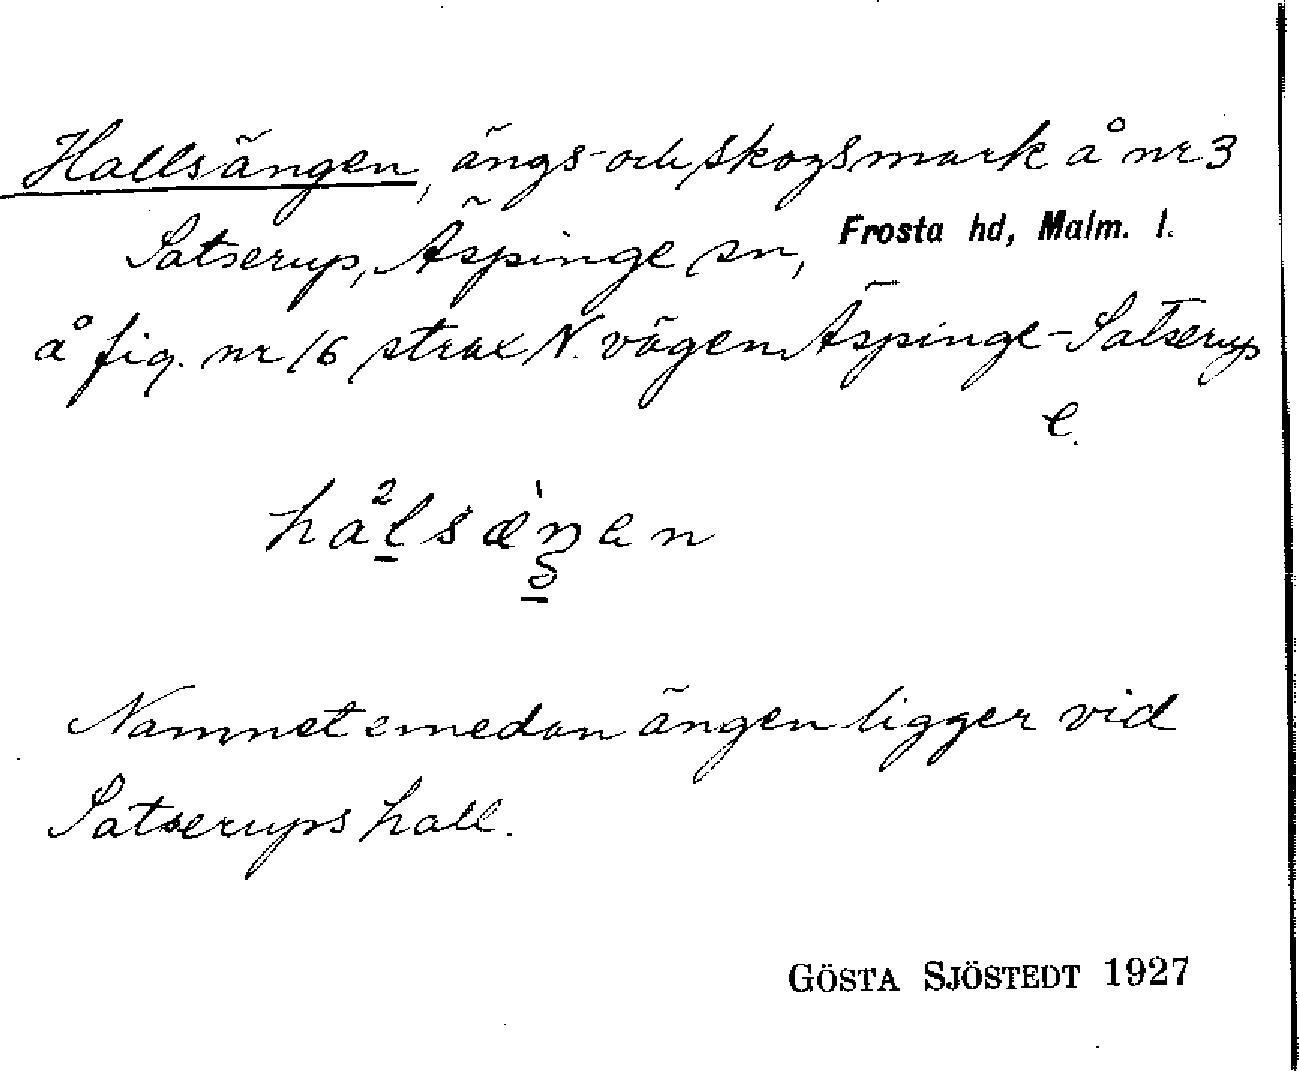 Hallsängen, ängs- och skogsmark å nr 3
Satserup, Äspinge sn, Frosta hd, Malm. l.
å fig. nr 16 strax N. vägen Äspinge-Satserup
e.
Namnet emedan ängen ligger vid
Satserups hall.
GÖSTA SJÖSTEDT 1927